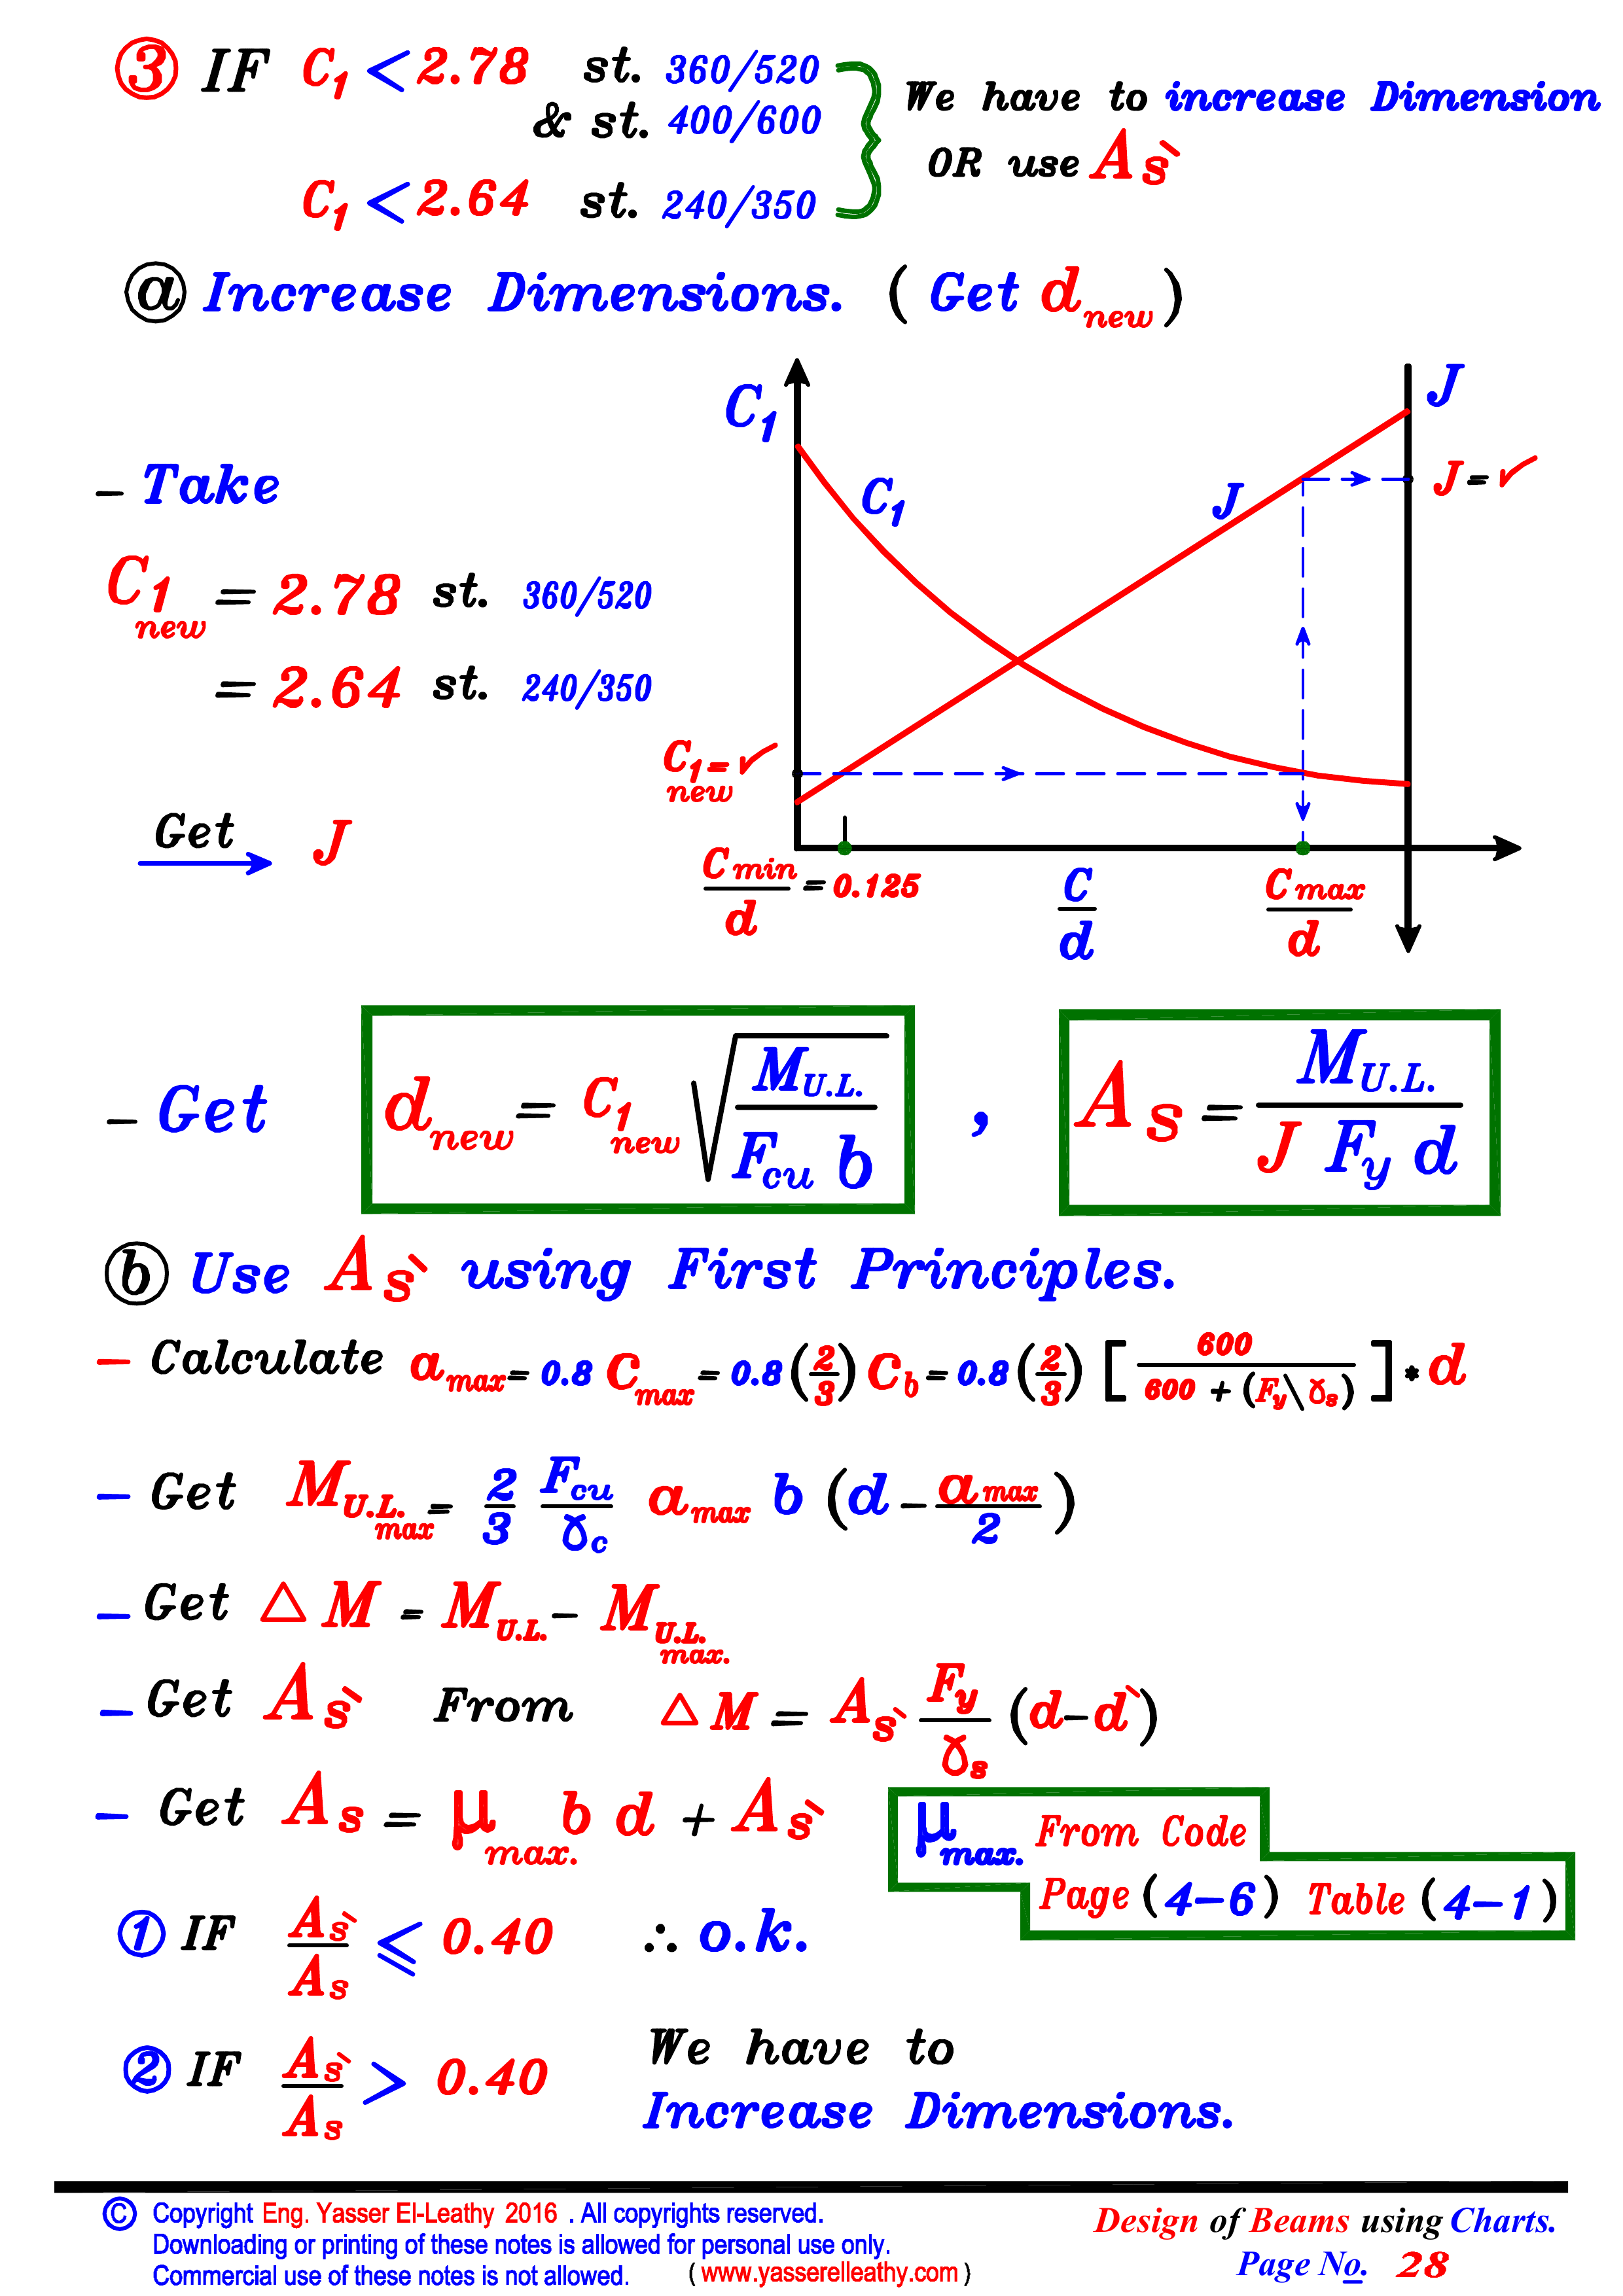 ③ IF C1 < 2.78 st. 360/520
& st. 400/600
C1 < 2.64 st. 240/350
We have to increase Dimension
OR use As`
ⓐ Increase Dimensions. ( Get dnew )
– Take
C1new = 2.78 st. 360/520
= 2.64 st. 240/350
Get J
C1
J
C1
J
J = ✓
C1new = ✓
Cmin/d = 0.125
C/d
Cmax/d
– Get dnew = C1new √(MU.L. / Fcu b) , As = MU.L. / J Fy d
ⓑ Use As` using First Principles.
– Calculate amax = 0.8 Cmax = 0.8 (2/3) Cb = 0.8 (2/3) [ 600 / 600 + (Fy\ɣs) ] * d
– Get MU.L.max = 2/3 Fcu/ɣc amax b (d – amax/2)
– Get △M = MU.L. – MU.L.max.
– Get As` From △M = As` Fy/ɣs (d–d`)
– Get As = μmax. b d + As`
μmax. From Code
Page (4–6) Table (4–1)
① IF As`/As ⩽ 0.40 ∴ o.k.
② IF As`/As > 0.40 We have to
Increase Dimensions.
© Copyright Eng. Yasser El-Leathy 2016 . All copyrights reserved.
Downloading or printing of these notes is allowed for personal use only.
Commercial use of these notes is not allowed. ( www.yasserelleathy.com )
Design of Beams using Charts.
Page No. 28